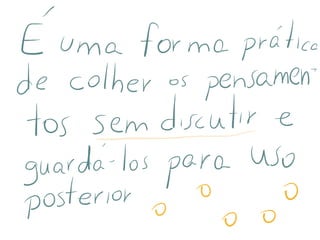 É uma forma prática
de colher os pensamen
tos sem discutir e
guardá-los para uso
posterior